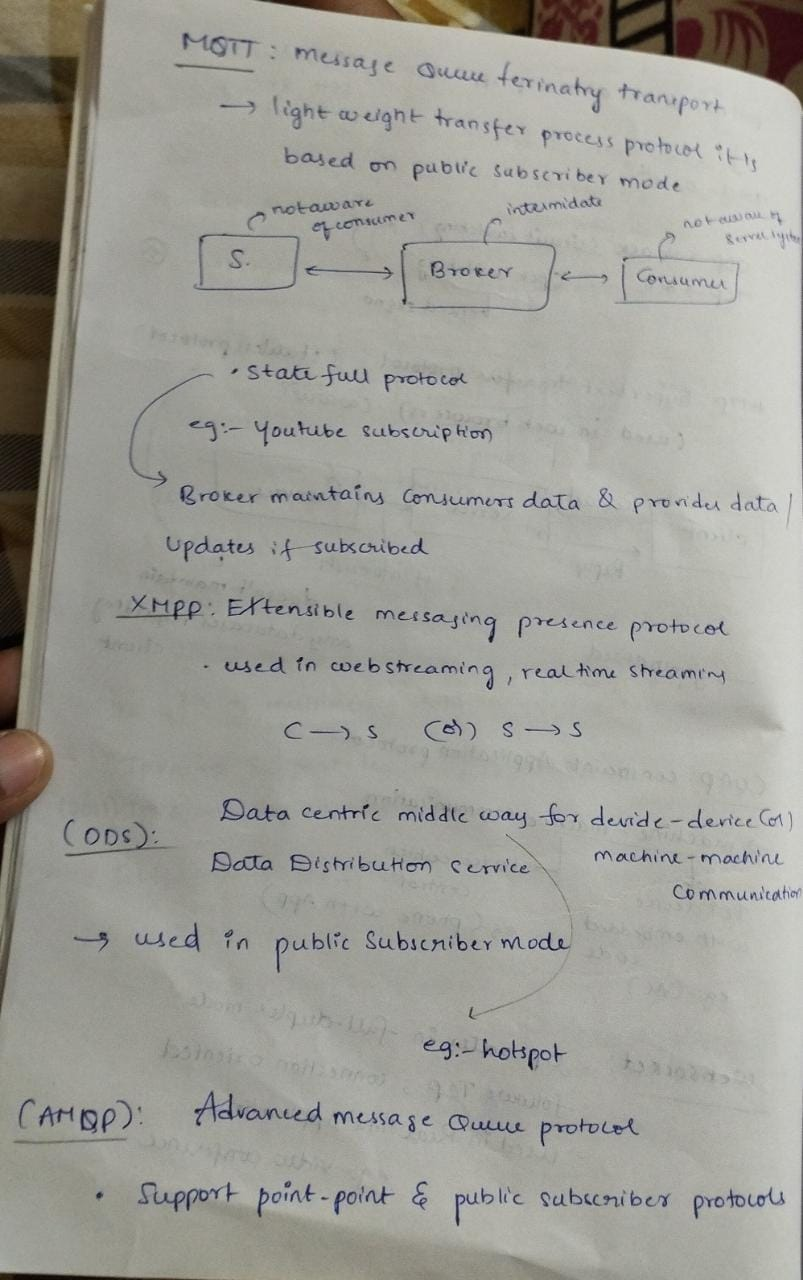 MQTT : Message Queue terinatry transport
→ light weight transfer process protocol it is
based on public subscriber mode
not aware of consumer
intermidate
not aware of server system
S.
Broker
Consumer
• State full protocol
eg:- Youtube subscription
Broker maintains consumers data & provider data /
Updates if subscribed
XMPP: Extensible messaging presence protocol
• used in webstreaming, real time streaming
C → S (or) S → S
(DDS): Data centric middle way for devide-device (or)
Data Distribution Service
machine-machine
Communication
→ used in public Subscriber mode
eg:- hotspot
(AMQP): Advanced message Queue protocol
• Support point-point & public subscriber protocols